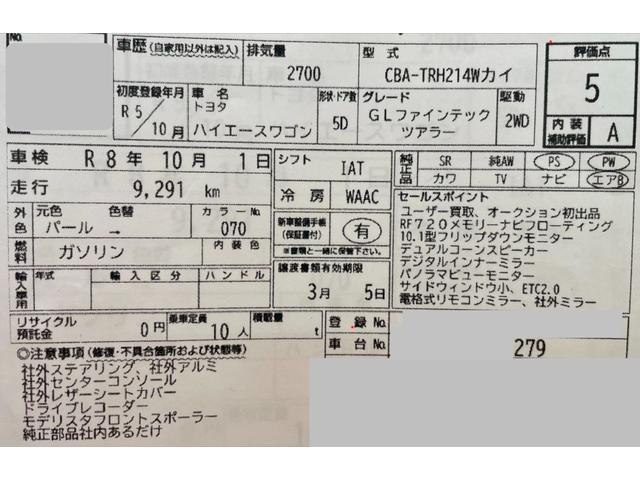 No.
車歴 (自家用以外は記入)
排気量
2700
型式
CBA-TRH214Wカイ
評価点
5
初度登録年月
R 5/10月
車名
トヨタ
ハイエースワゴン
形状・ドア数
5D
グレード
GLファインテック
ツアラー
駆動
2WD
内装
補助評価
A
車検 R 8年 10月 1日
シフト IAT
純正品 SR 純AW PS PW
カワ TV ナビ エアB
走行 9,291 km
冷房 WAAC
外色 元色 色替 カラーNo.
パール → 070
新車整備手帳
(保証書付)
有
※書類と一緒に保管下さい。
セールスポイント
ユーザー買取、オークション初出品
RF720メモリーナビフローティング
10.1型フリップダウンモニター
デュアルコーンスピーカー
デジタルインナーミラー
パノラマビューモニター
サイドウィンドウ小、ETC2.0
電格式リモコンミラー、社外ミラー
燃料 ガソリン 内装色
輸入車用 年式 輸入区分 ハンドル
譲渡書類有効期限
3月 5日
リサイクル
預託金
0円 乗車定員 10人 積載量 t
登録No.
車台No. 279
◎注意事項 (修復・不具合箇所および状態等)
社外ステアリング、社外アルミ
社外センターコンソール
社外レザーシートカバー
ドライブレコーダー
モデリスタフロントスポーラー
純正部品社内あるだけ